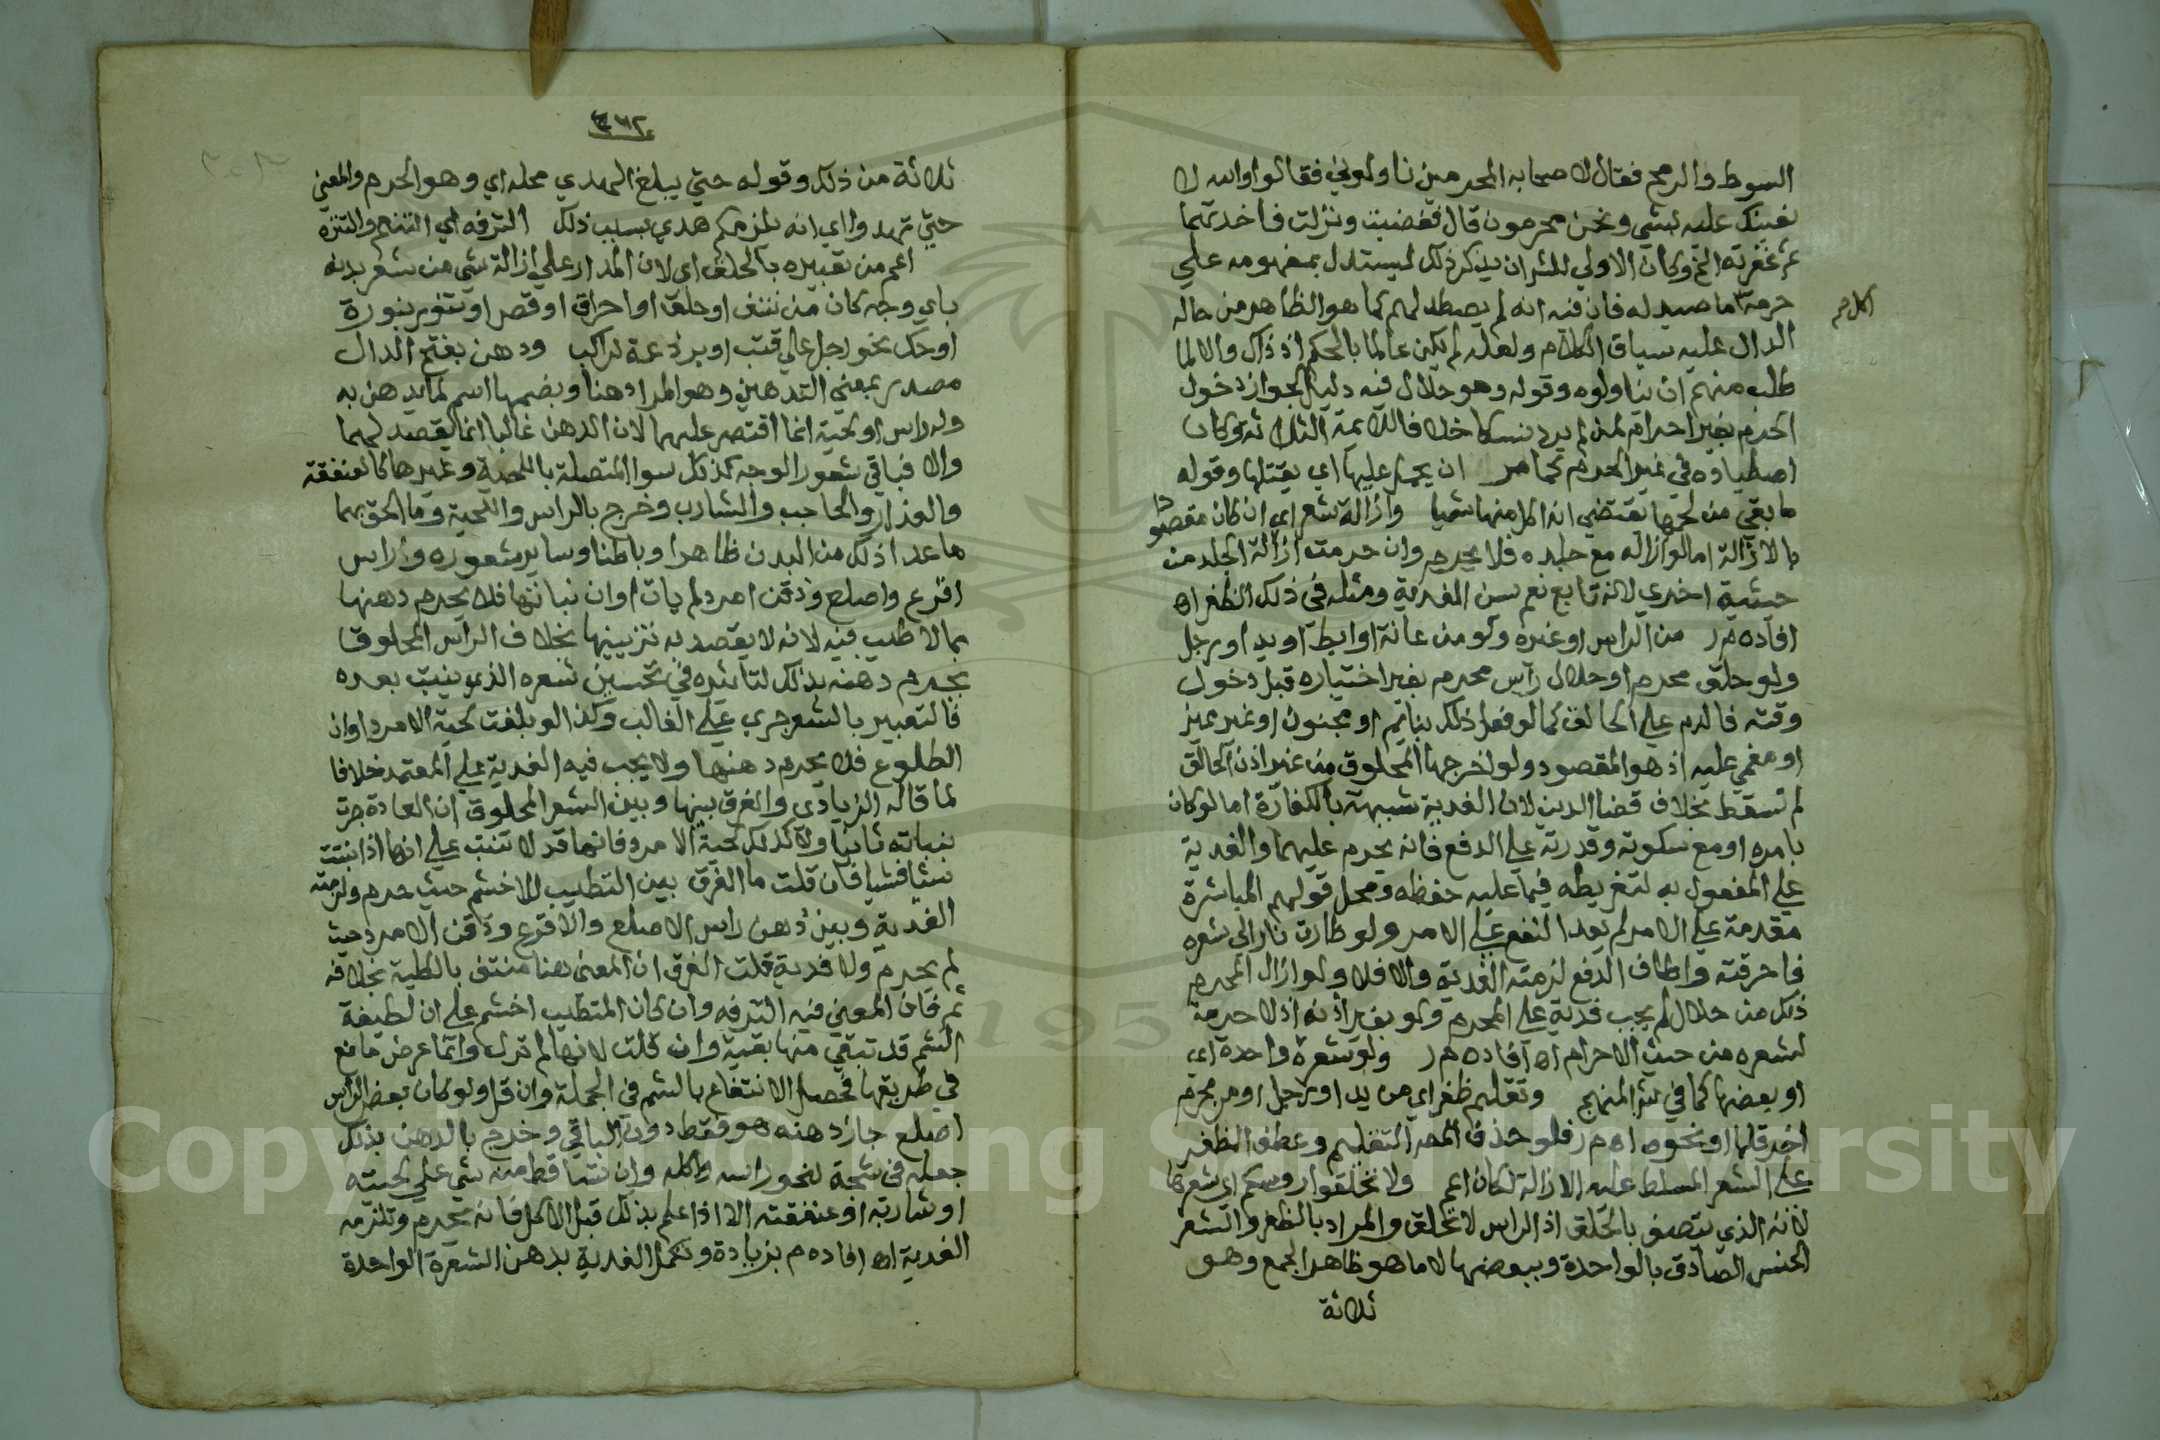 السوط والرمح فقال لاصحابه المحرمين ناولوني فقالوا والله لا
نعينك عليه بشي ونحن محرمون قال فغضبت ونزلت فاخدتهما
ثم عقرته الخ وكان الاولي للشران يذكر ذلك ليستدل بمفهومه علي
حرمة ما صيد له فان فيه انه لم يصطد لهم كما هو الظاهر من حاله
اكل صح
الدال عليه سياق الكلام ولعله لم يكن عالما بالحكم اذ ذاك والا لما
طلب منهم ان يناولوه وقوله وهو حلال فيه دليل لجواز دخول
الحرم بغير احرام لمن لم يرد نسكا خلافا للايمة الثلاثة وكان
اصطياده في غير الحرم كما مر ان يحمل عليها اي يقتلها وقوله
ما بقي من لحمها يقتضي انه اكل منها شيا وازالة شعر اي ان كان مقصودا
بالازالة اما لو ازاله مع جلده فلا يحرم وان حرمت ازالة الجلد من
حيثية اخري لانه تابع نعم تسن الفدية ومثله في ذلك الظفر اه
افاده م ر من الراس او غيره ولو من عانة او ابط او يد او رجل
ولو حلق محرم او حلال راس محرم بغير اختياره قبل دخول
وقته فالدم علي الحالق كما لو فعل ذلك بنايم او مجنون او غير مميز
او مغمي عليه اذ هو المقصود ولو اخرجها المحلوق من غير اذن الحالق
لم تسقط بخلاف قضا الدين لان الفدية شبيهة بالكفارة اما لو كان
بامره او مع سكوته وقدرته علي الدفع فانه يحرم عليهما والفدية
علي المفعول به لتفريطه فيما عليه حفظه ومحل قولهم المباشرة
مقدمة علي الامر لم يعد النفع علي الامر ولو طارت نار الي شعره
فاحرقته واطاق الدفع لزمته الفدية والا فلا ولو ازال المحرم
ذلك من حلال لم يجب فدية علي المحرم ولو بغير اذنه اذ لا حرمة
لشعره من حيث الاحرام اه افاده م ر ولو شعرة واحدة اي
او بعضها كما في شر المنهج وتقليم ظفر اي من يد او رجل او من محرم
اخر قلما او نحوه اه م ر فلو حذف المص التقليم وعطف الظفر
علي الشعر المسلط عليه الازالة لكان اعم ولا تحلقوا روسكم اي شعرها
لانه الذي يتصف بالحلق اذ الراس لا تحلق والمراد بالظفر والشعر
الجنس الصادق بالواحدة وببعضها لا ما هو ظاهر الجمع وهو
ثلاثة
٣٦٢
ثلاثة من ذلك وقوله حتي يبلغ الهدي محله اي وهو الحرم والمعني
حتي تهدوا اي انه يلزمكم هدي بسبب ذلك الترفه اي التنعم والتنزه
اعم من تعبيره بالحلق اي لان المدار علي ازالة شي من شعر بدنه
باي وجه كان من نتف او حلق او احراق او قص او تنوير بنورة
او حك نحو رجل علي قتب او برذعة لراكب ودهن بفتح الدال
مصدر بمعني التدهين وهو المراد هنا وبضمها اسم لما يدهن به
وله راس او لحية انما اقتصر عليهما لان الدهن غالبا انما يقصد لهما
والا فباقي شعور الوجه كذلك سوا المتصلة باللحية وغيرها كالعنفقة
والعذار والحاجب والشارب وخرج بالراس واللحية وما الحق بهما
ما عدا ذلك من البدن ظاهرا وباطنا وساير شعوره وراس
اقرع واصلع وذقن امرد لم يات اوان نباتها فلا يحرم دهنها
بما لا طيب فيه لانه لا يقصد به تزيينها بخلاف الراس المحلوق
يحرم دهنه بذلك لتاثيره في تحسين شعره الذي ينبت بعده
فالتعبير بالشعر جري علي الغالب وكذا لو بلغت لحية الامرد اوان
الطلوع فلا يحرم دهنها ولا يجب فيه الفدية علي المعتمد خلافا
لما قاله الزيادي والفرق بينها وبين الشعر المحلوق ان العادة جرت
بنباته ثانيا ولا كذلك لحية الامرد فانها قد لا تنبت علي انها اذا نبتت
شيا فشيا فان قلت ما الفرق بين التطيب للاخشم حيث حرم ولزمته
الفدية وبين دهن راس الاصلع والاقرع وذقن الامرد حيث
لم يحرم ولا فدية قلت الفرق ان المعني هنا منتف بالكلية بخلافه
ثم فان المعني فيه الترفه وان كان المتطيب اخشم علي ان لطيفة
الشم قد تبقي منها بقية وان قلت لانها لم تزل وانما عرض مانع
في طريقها فحصل الانتفاع بالشم في الجملة وان قل ولو كان بعض الراس
اصلع جاز دهنه هو فقط دون الباقي وخرج بالدهن بذلك
جعله في شجة نحو راسه واكله وان تساقط منه شي علي لحيته
او شاربه او عنفقته الا اذا علم بذلك قبل الاكل فانه يحرم وتلزمه
الفدية اه افاده م بزيادة وتكمل الفدية بدهن الشعرة الواحدة
Copyright © King Saud University
1957